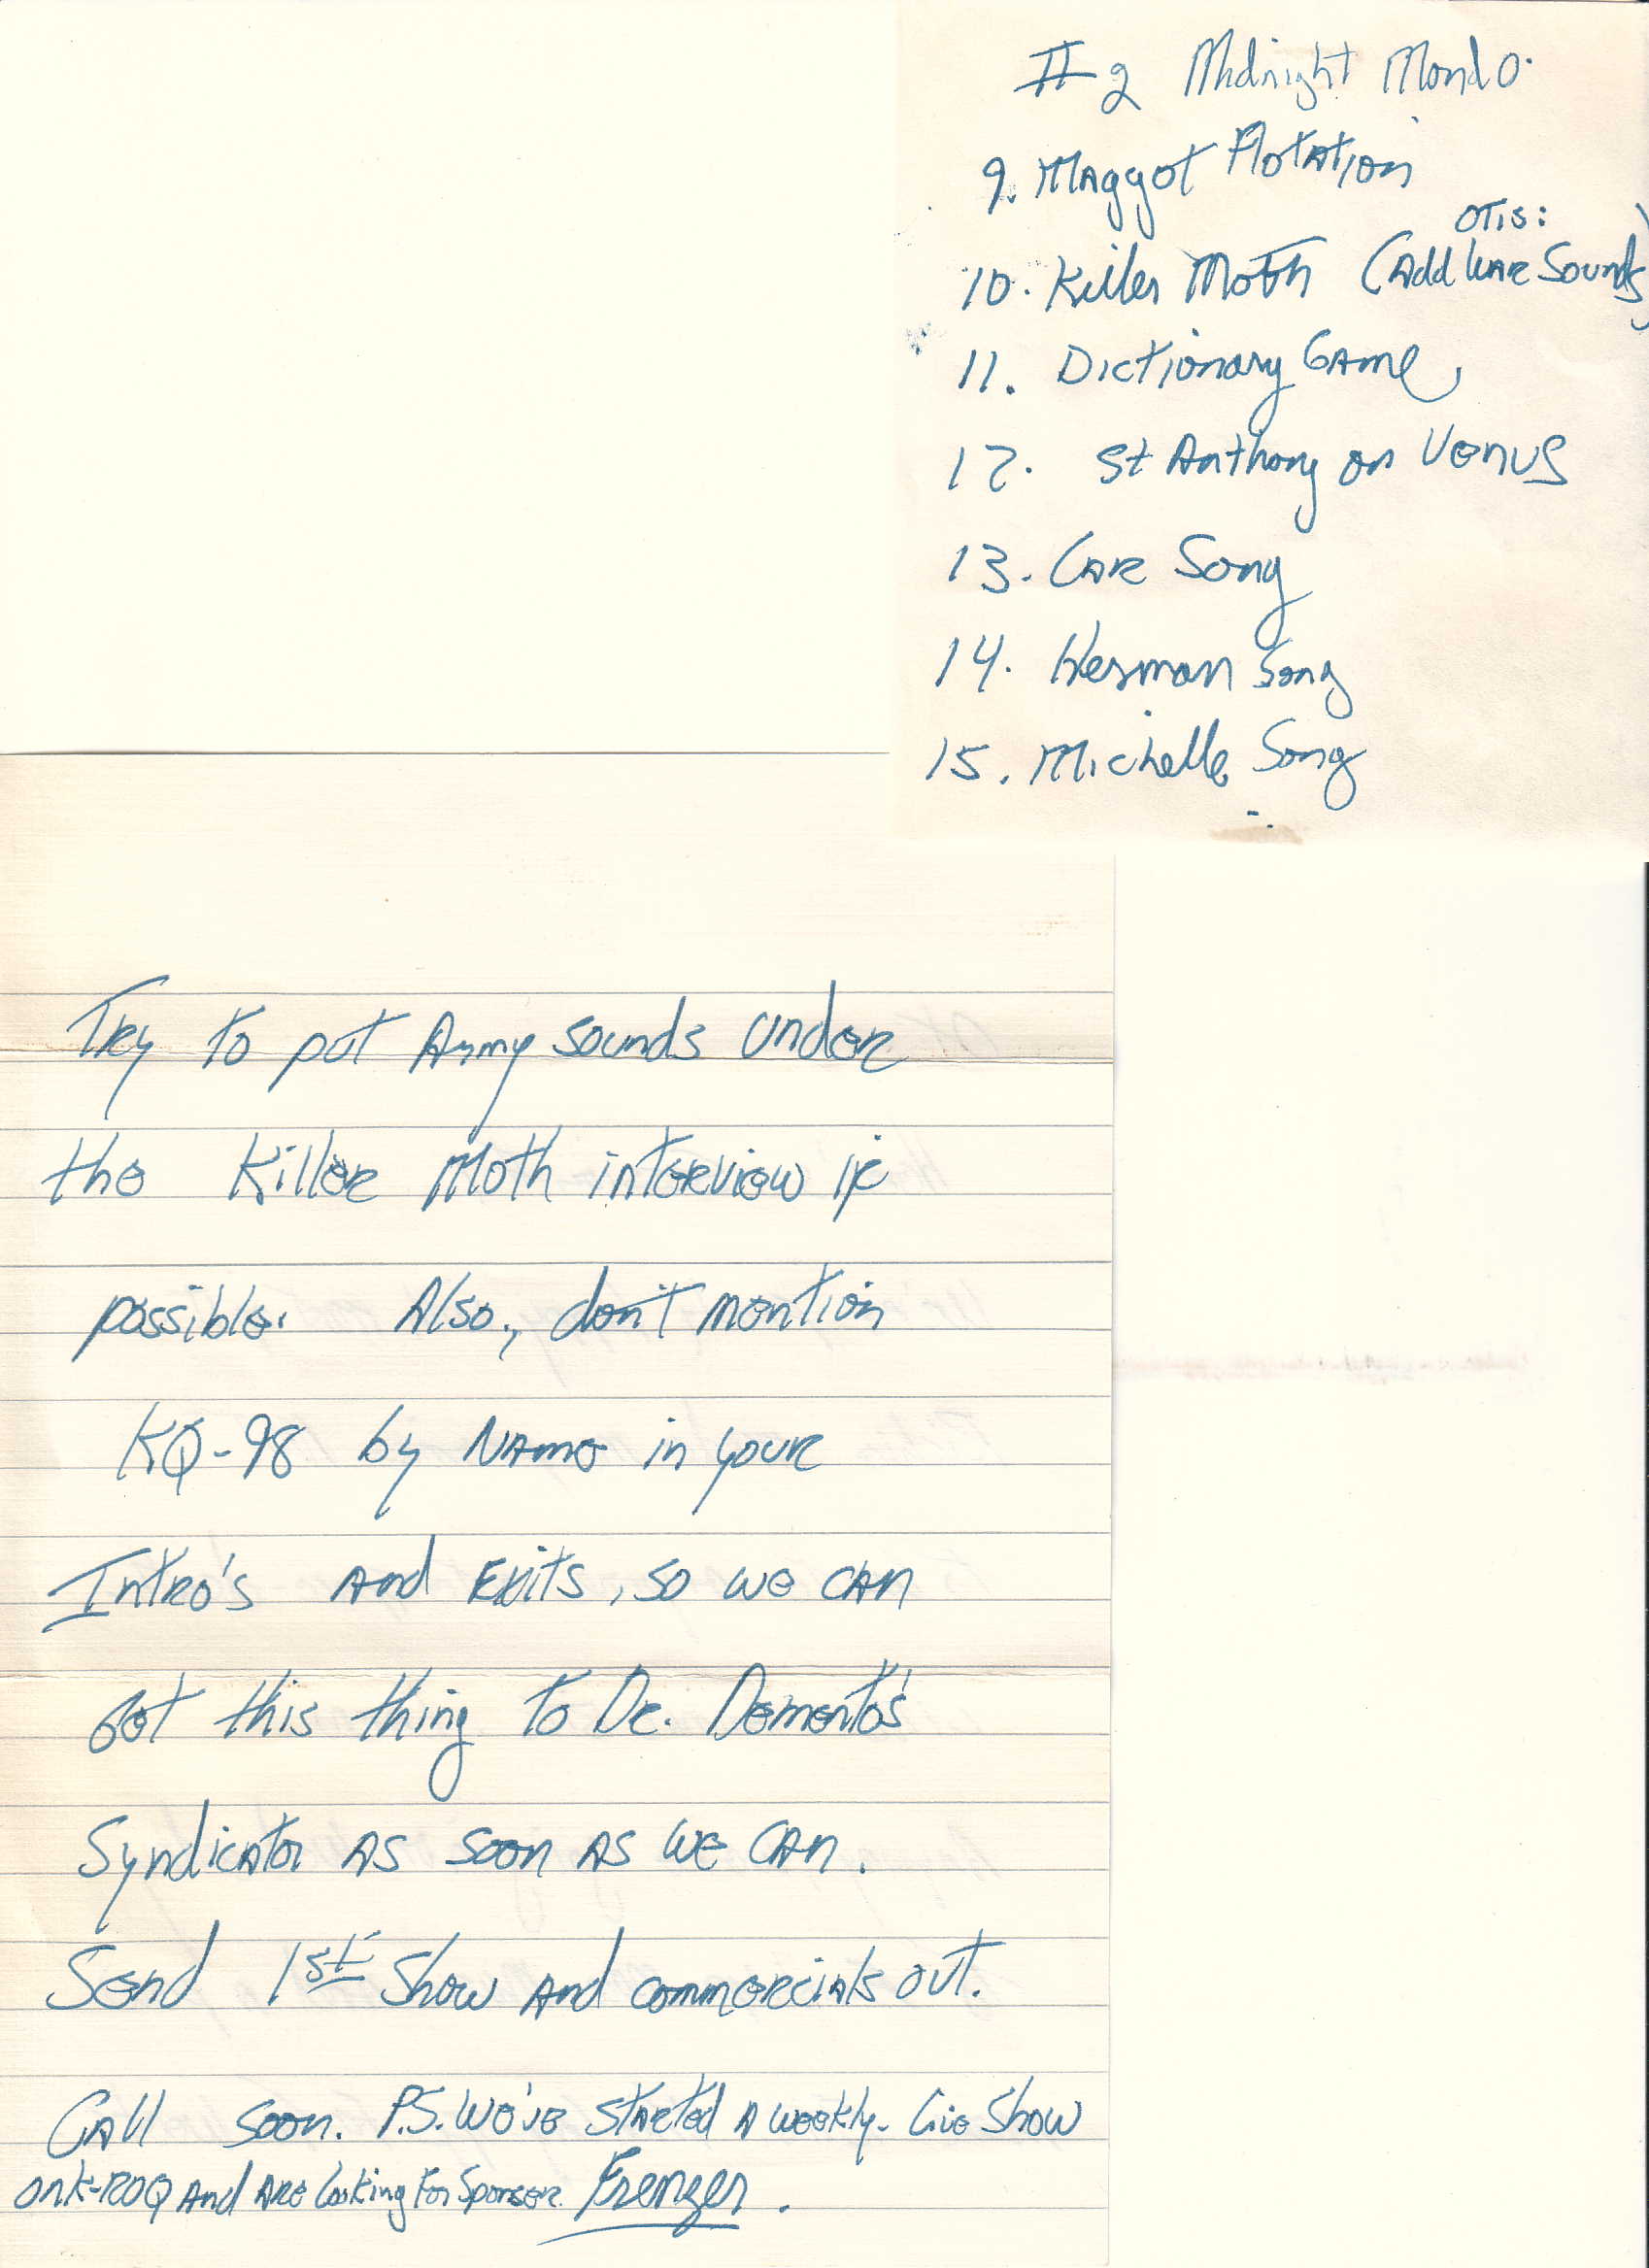 # 2 Midnight Mondo.
9. Maggot Flotation
OTis:
10. Killer Moth (Add War Sounds)
11. Dictionary Game
12. St Anthony on Venus
13. Car Song
14. Herman Song
15. Michelle Song
Try to put Army sounds under
the Killer Moth interview if
possible. Also, don't mention
KQ-98 by Name in your
Intro's And Exits, so we can
get this thing to Dr. Demento's
Syndicator As soon As we can.
Send 1st Show And commercials out.
Call soon. P.S. We've started A weekly Live Show
on K-ROQ And Are Looking For Sponsor. Frenzer.